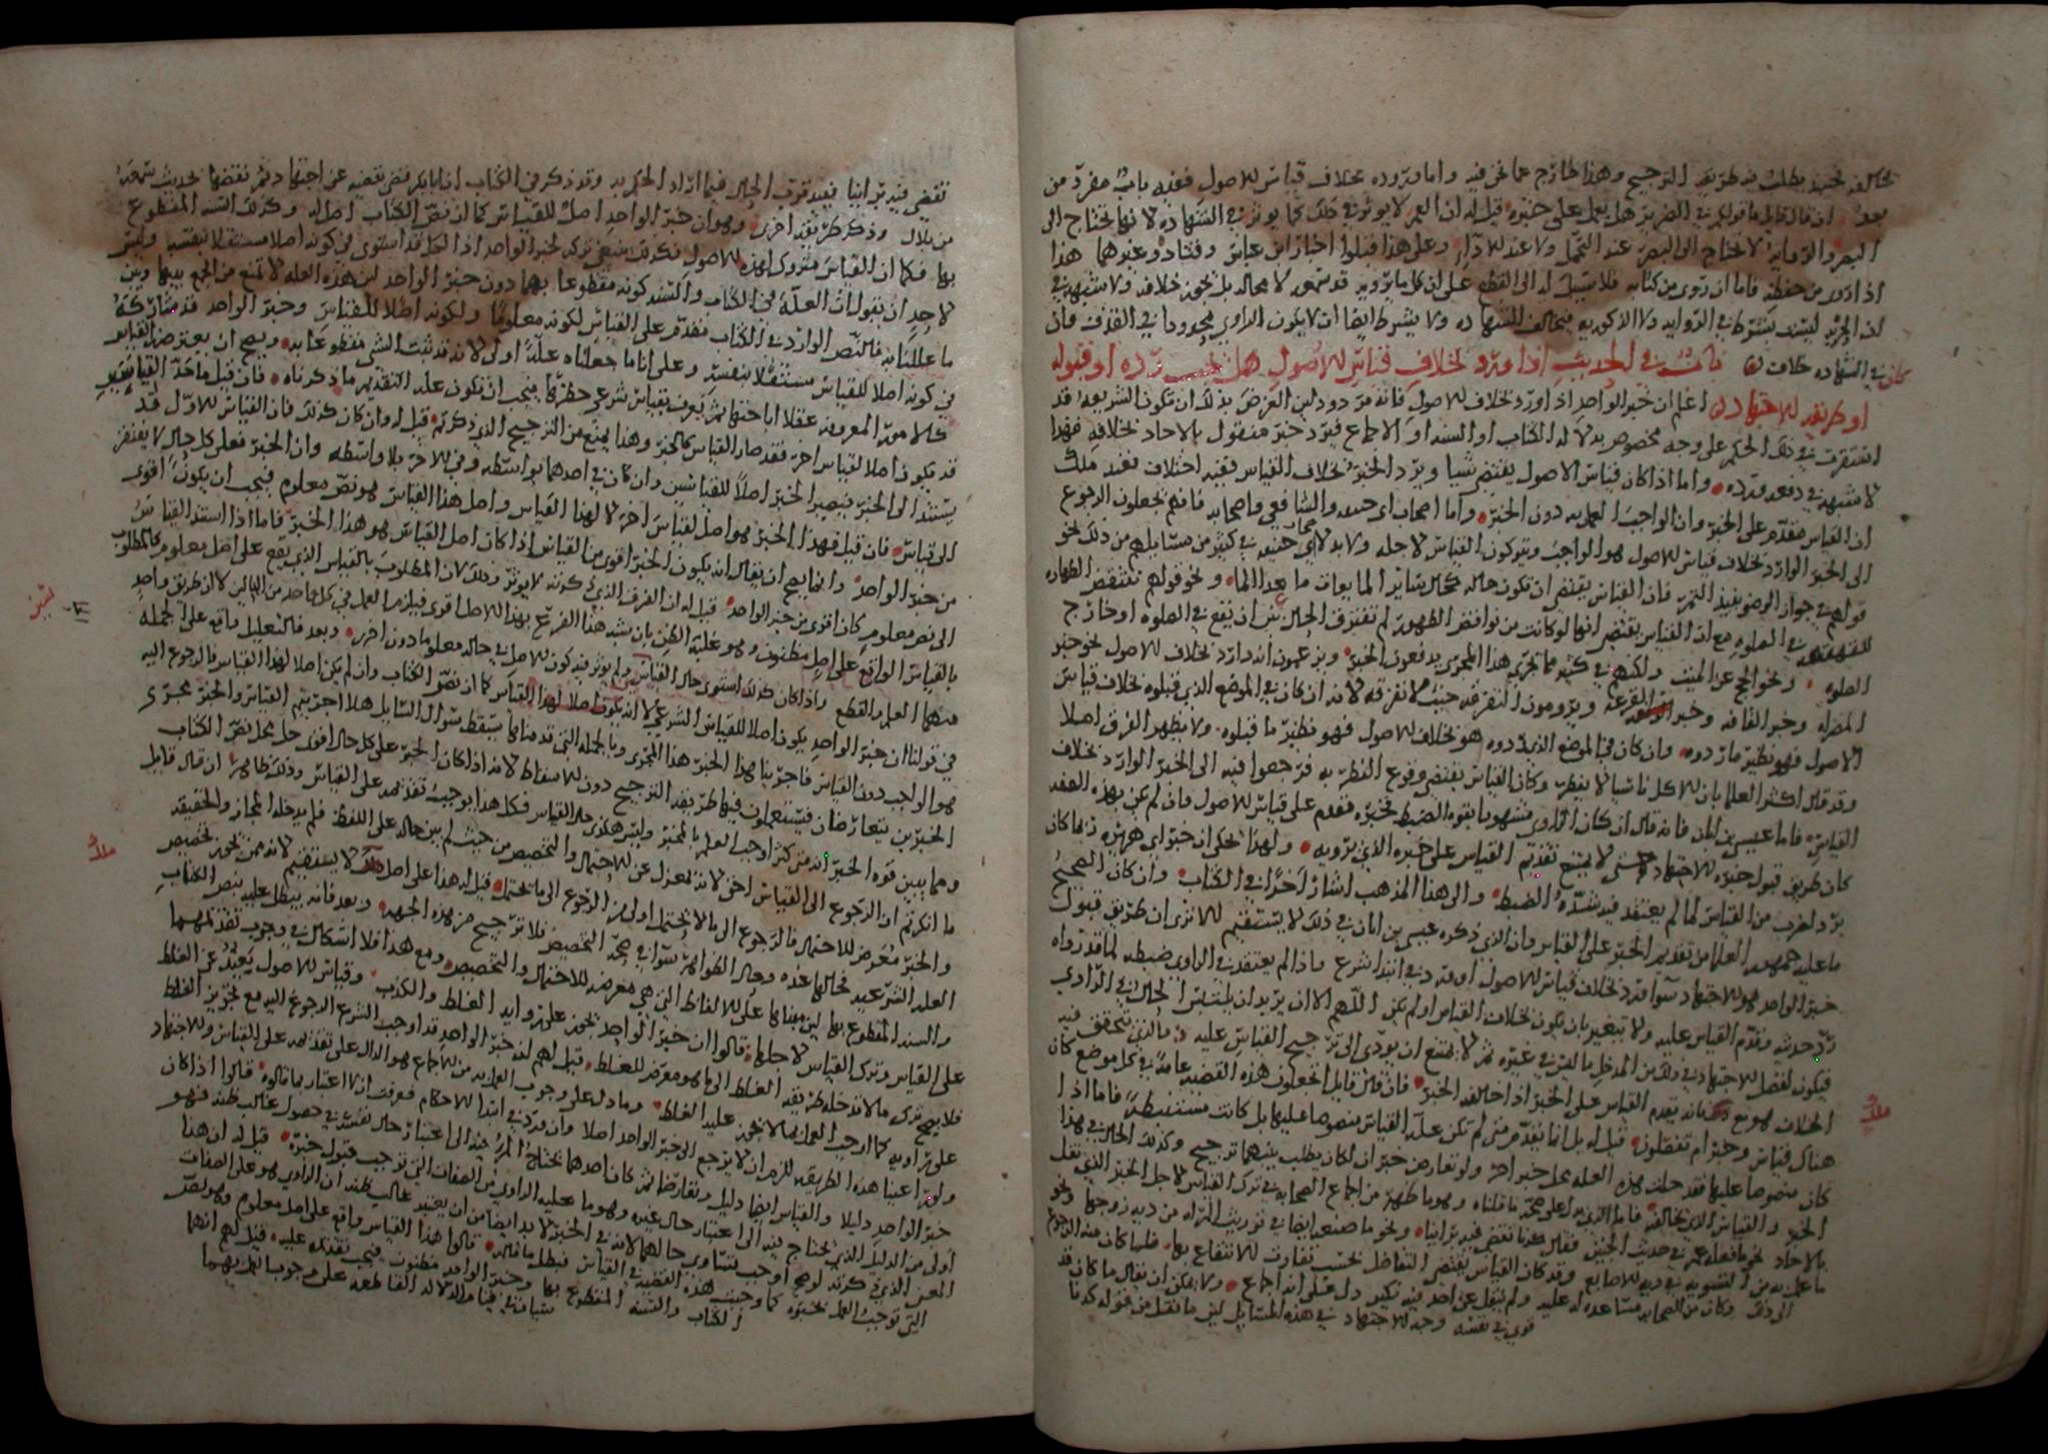 يخالفه بخبر يطلب فيه طريقة الترجيح وهذا خارج عما نحن فيه واما وروده بخلاف قياس الاصول ففيه باب مفرد من
بعد ان قال قايل ما قولكم في الضرير هل يعمل على خبره قيل له ان العمى لا يوثر في ذلك كما يوثر في الشهاده لانها تحتاج الى
البصر والروايه لا تحتاج الى البصر عند التحمل ولا عند الادآء وعلى هذا قبلوا اخبار ابن عباس وقتاده وغيرهما هذا
اذا روى من حفظه فاما ان روى من كتابه فلا سبيل له الى القطع على ان كل ما يرويه قد سمعه لا محاله بل يجوز خلافه ولا شبهه في
ان الحريه ليست بشرط في الروايه ولا الذكوريه فيخالف الشهاده ولا يشرط ايضا ان لا يكون الراوي محدودا في القذف وان
كان في الشهاده خلاف باب في الحديث اذا ورد بخلاف قياس الاصول هل يجب رده او قبوله
او طريقه الاجتهاد اعلم ان خبر الواحد اذا ورد بخلاف الاصول فانه مردود لان الغرض بذلك ان تكون الشريعه قد
استقرت في ذلك الحكم على وجه مخصوص بدلاله الكتاب او السنه او الاجماع فيرد خبر منقول بالاحاد بخلافه فهذا
لا شبهه في دفعه ورده واما اذا كان قياس الاصول يقتضي شيا ويرد الخبر بخلاف القياس ففيه اختلاف فعند ملك
ان القياس مقدم على الخبر وان الواجب العمل به دون الخبر واما اصحاب ابي حنيفه والشافعي واصحابه فانهم يجعلون الرجوع
الى الخبر الوارد بخلاف قياس الاصول هو الواجب ويتركون القياس لاجله ولا بد لاصحاب ابي حنيفه في كثير من مسايلهم من ذلك نحو
قولهم في جواز الوضو بنبيذ التمر فان القياس يقتضي ان تكون حاله كحال ساير المايعات ما عدا الماء ونحو قولهم تنتقض الطهاره
للقهقهه في الصلوه مع ان القياس يقتضي انها لو كانت من نواقض الطهور لم تفترق الحال بين ان تقع في الصلوه او خارج
الصلوه ونحو الحج عن الميت ولكنهم في كثير مما يجري هذا المجرى يدفعون الخبر ويزعمون انه وارد بخلاف الاصول نحو خبر
المصراه وخبر القافه وخبر القرعه ويرومون التفرقه حيث لا تفرقه لانه ان كان في الموضع الذي قبلوه بخلاف قياس
الاصول فهو نظير ما ردوه وان كان في الموضع الذي ردوه هو بخلاف الاصول فهو نظير ما قبلوه ولا يظهر الفرق اصلا
وقد قال اكثر العلما بان الاكل ناسيا لا يفطر وكان القياس يقتضي وقوع الفطر به فرجعوا فيه الى الخبر الوارد بخلاف
القياس فاما عيسى بن ابان فانه قال ان كان الراوي مشهورا بقوه الضبط فخبره مقدم على قياس الاصول وان لم يكن بهذه الصفه
كان طريق قبول خبره الاجتهاد حتى لا يمتنع تقديم القياس على خبره الذي يرويه ولهذا يحكى ان خبر ابي هريره ربما كان
يرد لضرب من القياس لما لم يعتقد فيه شده الضبط والى هذا المذهب اشار آخرًا في الكتاب وان كان الصحيح
ما عليه جمهور العلما من تقديم الخبر على القياس وان الذي ذكره عيسى بن ابان في ذلك لا يستقيم الا ترى ان طريق قبول
خبر الواحد هو الاجتهاد سوآ ورد بخلاف قياس الاصول او ورد في ابتدا شرع واذا لم يعتقد في الراوي ضبطه لما قد رواه
رد حديثه وقدم القياس عليه ولا يتغير بان يكون بخلاف القياس او لم يكن اللهم الا ان يريد ان يلتبس الحال في الراوي
فيكون لفضل الاجتهاد في ذلك من المدخل ما ليس في غيره ثم لا يمتنع ان يودي الى ترجيح القياس عليه فما الذي تحقق فيه
الخلاف فهو مع ملك فانه يقدم القياس على الخبر اذا خالفه الخبر فان قال قايل اتجعلون هذه القضيه عامه في كل موضع كان
هناك قياس وخبر ام تفصلون قيل له بل انما نقدم متى لم تكن علة القياس منصوصا عليها بل كانت مستنبطةً فاما اذا
كان منصوصا عليها فقد حلت هذه العله محل خبر اخر ولو تعارض خبران لكان يطلب بينهما ترجيح وكذلك الحال في هذا
الخبر والقياس الذي يخالفه فاما الذي يدل على صحه ما قلناه وهو ما ظهر من اجماع الصحابه في ترك القياس لاجل الخبر الذي نقل
بالاحاد نحو ما فعله عمر في حديث الجنين فقال كدنا نقضي فيه براينا ونحو ما صنعه ايضا في توريث المراه من ديه زوجها ونحو
ما عمله به من التسويه في ديه الاصابع وقد كان القياس يقتضي التفاضل بحسب تفاوت الانتفاع بها فلما كان منه الرجوع
الى ذلك وكان من الصحابه مساعده له عليه ولم ينقل عن احد فيه نكير دل على انه اجماع ولا يمكن ان يقال ما كان قد
قوي في نفسه وجه الاجتهاد في هذه المسايل لان ما نقل من قوله كدنا
ملك
نقضي فيه براينا فيفيد قوة الحال فيما اراد الحكم به وقد ذكر في الكتاب ان ابا بكر قضى بقضيه عن اجتهاد ثم نقضها لحديث سمعه
من بلال وذكر طريقه اخرى وهو ان خبر الواحد اصل للقياس كما ان نص الكتاب اصل له وكذلك السنه المقطوع
بها فكما ان القياس متروك لهذه الاصول فكذلك ينبغي تركه لخبر الواحد اذا الكل قد استوى في كونه اصلا مستقلا بنفسه وليس
لاحد ان يقول ان العلة في الكتاب والسنه كونه مقطوعا بهما دون خبر الواحد لان هذه العله لا تمنع من الجمع بينها وبين
ما عللنا به فالنص الوارد في الكتاب مقدم على القياس لكونه معلومًا ولكونه اصلا للقياس وخبر الواحد قد شاركه
في كونه اصلا للقياس مستقلا بنفسه وعلى ان ما جعلناه علةً اولى لانه قد ثبت الشي مقطوعا به ويصح ان يعترضه القياس
كالامور المعروفه عقلا اباحتها ثم يعرف بقياس شرعي حظرها فيجب ان تكون عله التقديم ما ذكرناه فان قيل ما حدّ القياس
قد يكون اصلا لقياس اخر فقد صار القياس كالخبر وهذا يمنع من الترجيح الذي ذكرتم قيل له وان كان كذلك فان القياس الاول قد
يستند الى الخبر فيصير الخبر اصلا للقياسين وان كان في احدهما بواسطه وفي الاخر بلا واسطه وان الخبر فعلى كل حال لا يفتقر
الى قياس فان قيل فهذا الخبر هو اصل لقياس اخر لا لهذا القياس واصل هذا القياس هو نص معلوم فيجب ان يكون اقوى
من خبر الواحد وانما يصح ان يقال انه يكون الخبر اقوى من القياس اذا كان اصل القياس هو هذا الخبر فاما اذا استند القياس
الى نص معلوم كان اقوى من خبر الواحد قيل له ان الفرق الذي ذكرته لا يوثر وذلك لان المطلوب بالقياس الذي يقع على اصل معلوم كالمطلوب
بالقياس الواقع على اصل مظنون وهو غلبة الظن بان يشبه هذا الفرع بهذا الاصل اقوى فيلزم العمل في كل واحد من الحالين لان طريق واحد
منهما العلم والقطع واذا كان كذلك استوى حال القياس ولم يوثر فيه كون الاصل في حاله معلوما دون اخرى وبعد فالتعليل واقع على الجمله
في قولنا ان خبر الواحد يكون اصلا للقياس الشرعي لا انه يكون اصلا لهذا القياس كما ان نص الكتاب وان لم يكن اصلا لهذا القياس فالرجوع اليه
هو الواجب دون القياس فاجرينا هذا الخبر هذا المجرى وبالجمله التي قدمناها يسقط سوال السايل هلا اجريتم القياس والخبر مجرى
الخبرين يتعارضان فتستعملون فيهما طريقه الترجيح دون الاسقاط لانه اذا كان الخبر على كل حال اقوى حل محل نص الكتاب
ومما يبين قوه الخبر انه متى كثر اوجب العلم بالمخبر وليس هكذى حال القياس فكل هذا يوجب تقديمه على القياس وذلك ظاهر ان قال قايل
ما انكرتم ان الرجوع الى القياس احق لانه بمعزل عن الاحتمال والتخصيص من حيث لم يبن حاله على اللفظ فلم يدخله المجاز والحقيقه
والخبر معرض للاحتمال فالرجوع الى ما لا يحتمل اولى من الرجوع الى ما يحتمل قيل له هذا على اصل ملك لا يستقيم لانه ممن يجوز تخصيص
العله الشرعيه فحالها عنده وحال الظواهر سوآ في صحه التخصيص فلا ترجيح من هذه الجهه وبعد فانه يبطل عليه بنص الكتاب
والسنه المقطوع بها لان مبناها على الالفاظ التي هي معرضه للاحتمال والتخصيص ومع هذا فلا اشكال في وجوب تقديمهما
على القياس وترك القياس لاجلهما قالوا ان خبر الواحد يجوز على راويه الغلط والكذب وقياس الاصول يبعد عن الغلط
فلا يصح ترك ما لا تدخله طريقه الغلط الى ما هو معرض للغلط قيل لهم ان خبر الواحد قد اوجب الشرع الرجوع اليه مع تجويز الغلط
على راويه كما اوجب العمل بما لا يجوز عليه الغلط وما دل على وجوب العمل به من الاجماع هو الدال على تقديمه على القياس والاجتهاد
ولو راعينا هذه الطريقه للزم ان لا يرجع الى خبر الواحد اصلا وان ورد في ابتدا الاحكام فعرفت انه لا اعتبار بما قالوه قالوا اذا كان
خبر الواحد دليلا والقياس ايضا دليل وتعارضا ثم كان احدهما يحتاج المرء فيه الى اعتبار حال نفسه في حصول غالب ظنه فهو
اولى من الدليل الذي يحتاج فيه الى اعتبار حال غيره وهو ما عليه الراوي من الصفات التي توجب قبول خبره قيل له ان هذا
المعنى الذي ذكرته لو صح اوجب تساوي حالهما لانه في الخبر لا بد ايضا من ان يعتبر غالب ظنه ان الراوي هو على الصفات
التي توجب العمل بخبره كما وجبت هذه القضيه في القياس فبطل ما قاله قالوا هذا القياس واقع على اصل معلوم وهو نص
الكتاب والسنه المقطوع بها وخبر الواحد مظنون فيجب تقديمه عليه قيل لهم انهما
سيان في قيام الدلاله القاطعه على وجوب العمل بهما
ملك